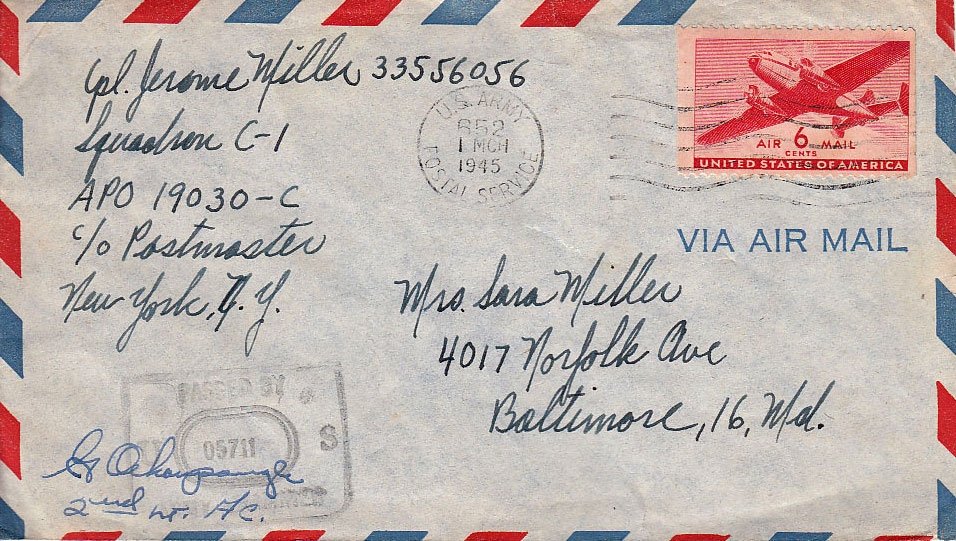 Cpl. Jerome Miller 33556056
Squadron C-1
APO 19030-C
c/o Postmaster
New York, N.Y.
U.S. ARMY
652
1 MCH
1945
POSTAL SERVICE
AIR 6 MAIL
CENTS
UNITED STATES OF AMERICA
VIA AIR MAIL
Mrs. Sara Miller
4017 Norfolk Ave
Baltimore, 16, Md.
PASSED BY
05711
S
2nd Lt. A/C.